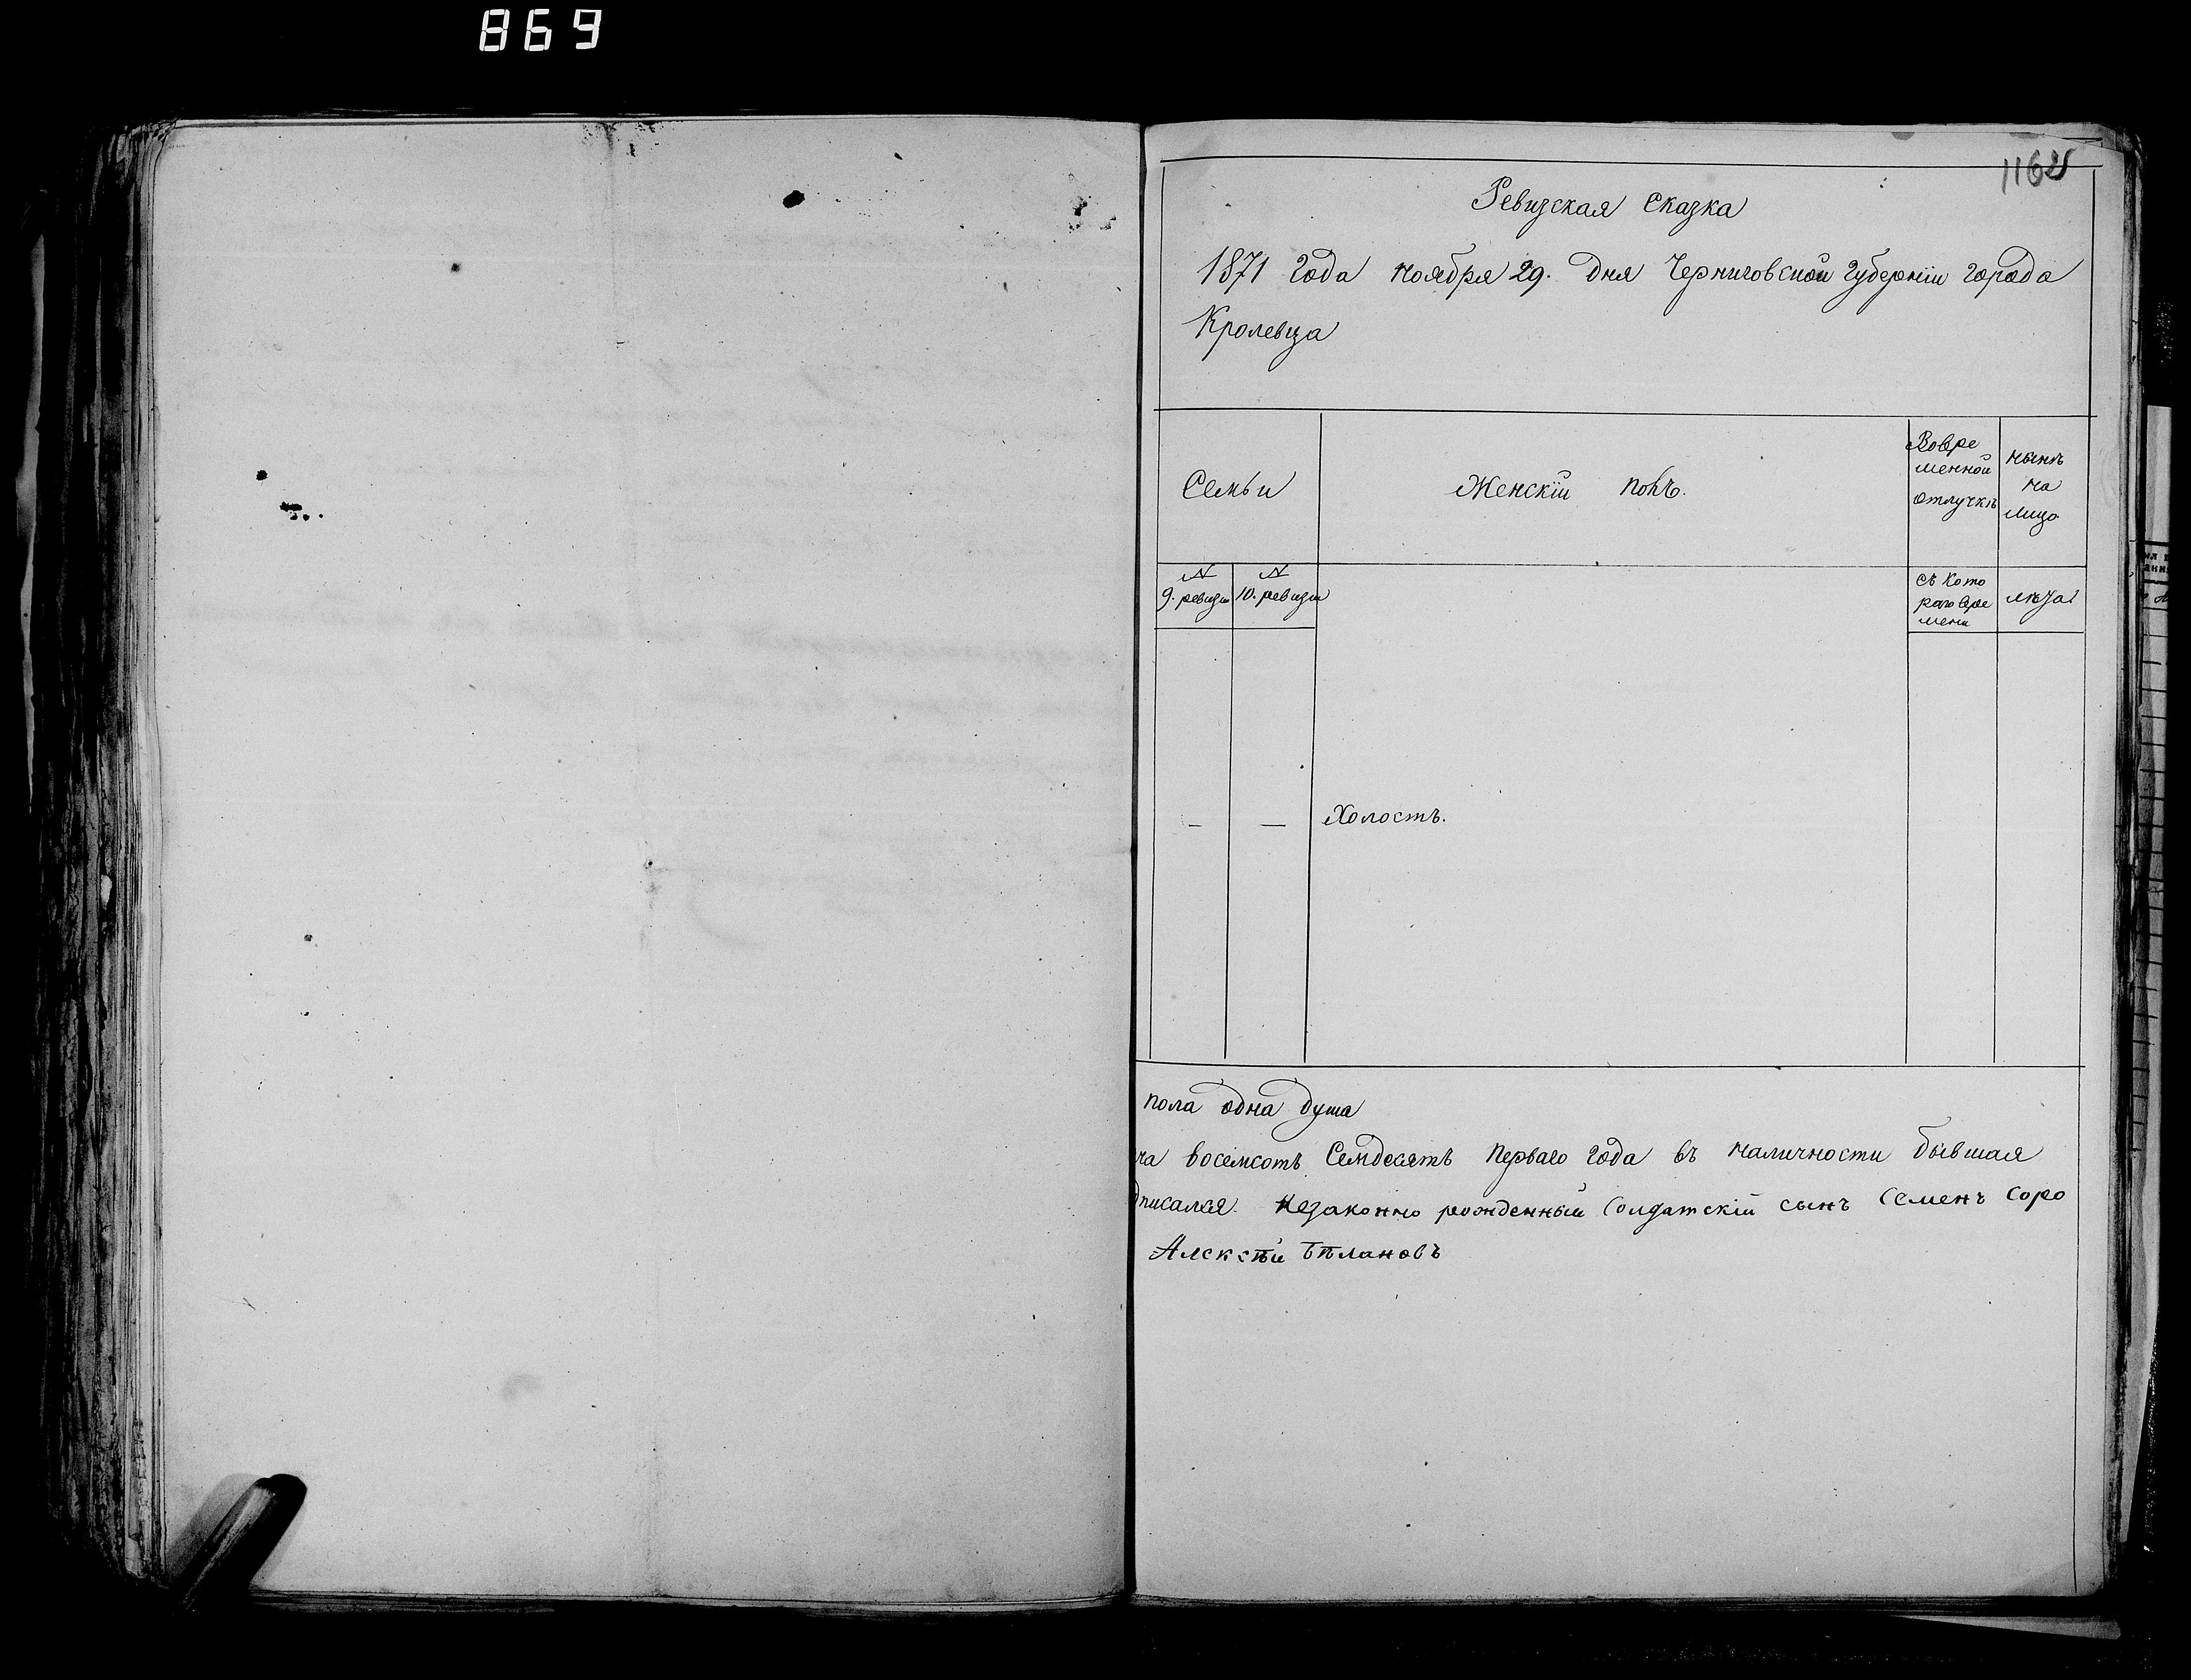 869
1162
Ревизская Сказка
1871 года ноября 29. дня Черниговской губернии города
Кролевца
Семьи
Женскій полъ.
Вовре
менной
отлучкѣ
нынѣ
на
лицо
N
9. ревизіи
N
10. ревизіи
съ кото
раго вре
мени
лѣта
—
—
Холостъ.
пола одна душа
ча восемсотъ Семдесятъ перваго года въ наличности бывшая
дписался. Незаконно рожденный Солдатскій сынъ Семенъ Соро
Алексѣй Бѣлановъ